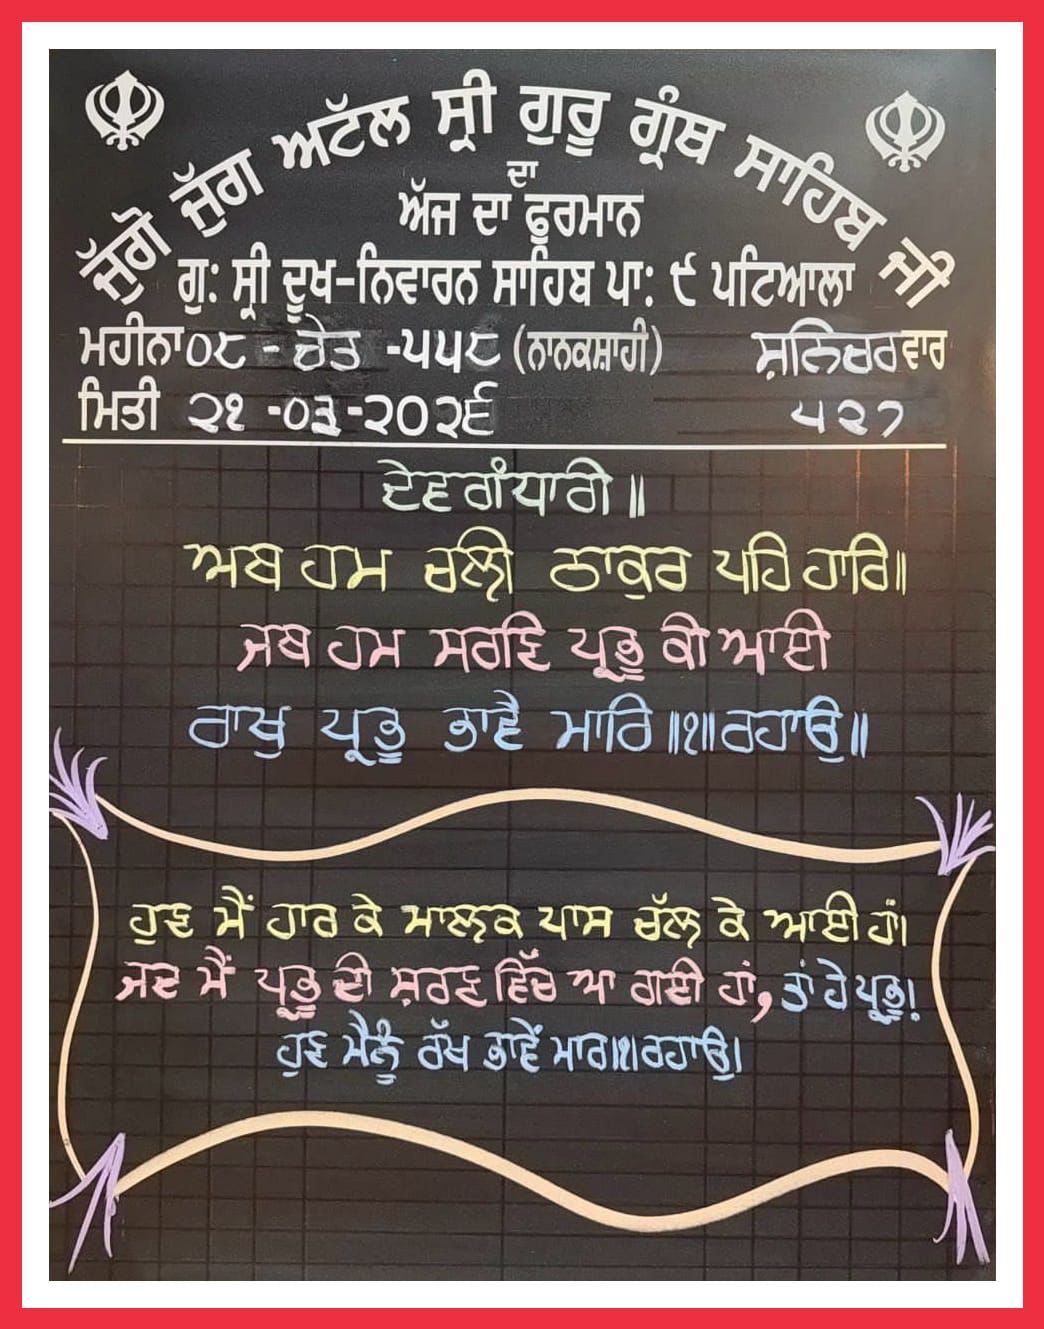 ਜੁੱਗੋ ਜੁੱਗ ਅਟੱਲ ਸ੍ਰੀ ਗੁਰੂ ਗ੍ਰੰਥ ਸਾਹਿਬ ਜੀ
ਦਾ
ਅੱਜ ਦਾ ਫੁਰਮਾਨ
ਗੁ: ਸ੍ਰੀ ਦੂਖ-ਨਿਵਾਰਨ ਸਾਹਿਬ ਪਾ: ੯ ਪਟਿਆਲਾ
ਮਹੀਨਾ ੦੮ - ਚੇਤ -੫੫੮ (ਨਾਨਕਸ਼ਾਹੀ) ਸ਼ਨਿਚਰਵਾਰ
ਮਿਤੀ ੨੧ -੦੩ -੨੦੨੬ ੫੨੭
ਦੇਵਗੰਧਾਰੀ ॥
ਅਬ ਹਮ ਚਲੀ ਠਾਕੁਰ ਪਹਿ ਹਾਰਿ॥
ਜਬ ਹਮ ਸਰਣਿ ਪ੍ਰਭੂ ਕੀ ਆਈ
ਰਾਖੁ ਪ੍ਰਭੂ ਭਾਵੈ ਮਾਰਿ ॥੧॥ ਰਹਾਉ॥
ਹੁਣ ਮੈਂ ਹਾਰ ਕੇ ਮਾਲਕ ਪਾਸ ਚੱਲ ਕੇ ਆਈ ਹਾਂ।
ਜਦ ਮੈਂ ਪ੍ਰਭੂ ਦੀ ਸ਼ਰਣ ਵਿੱਚ ਆ ਗਈ ਹਾਂ, ਤਾਂ ਹੇ ਪ੍ਰਭੂ!
ਹੁਣ ਮੈਨੂੰ ਰੱਖ ਭਾਵੇਂ ਮਾਰ॥੧॥ਰਹਾਉ।